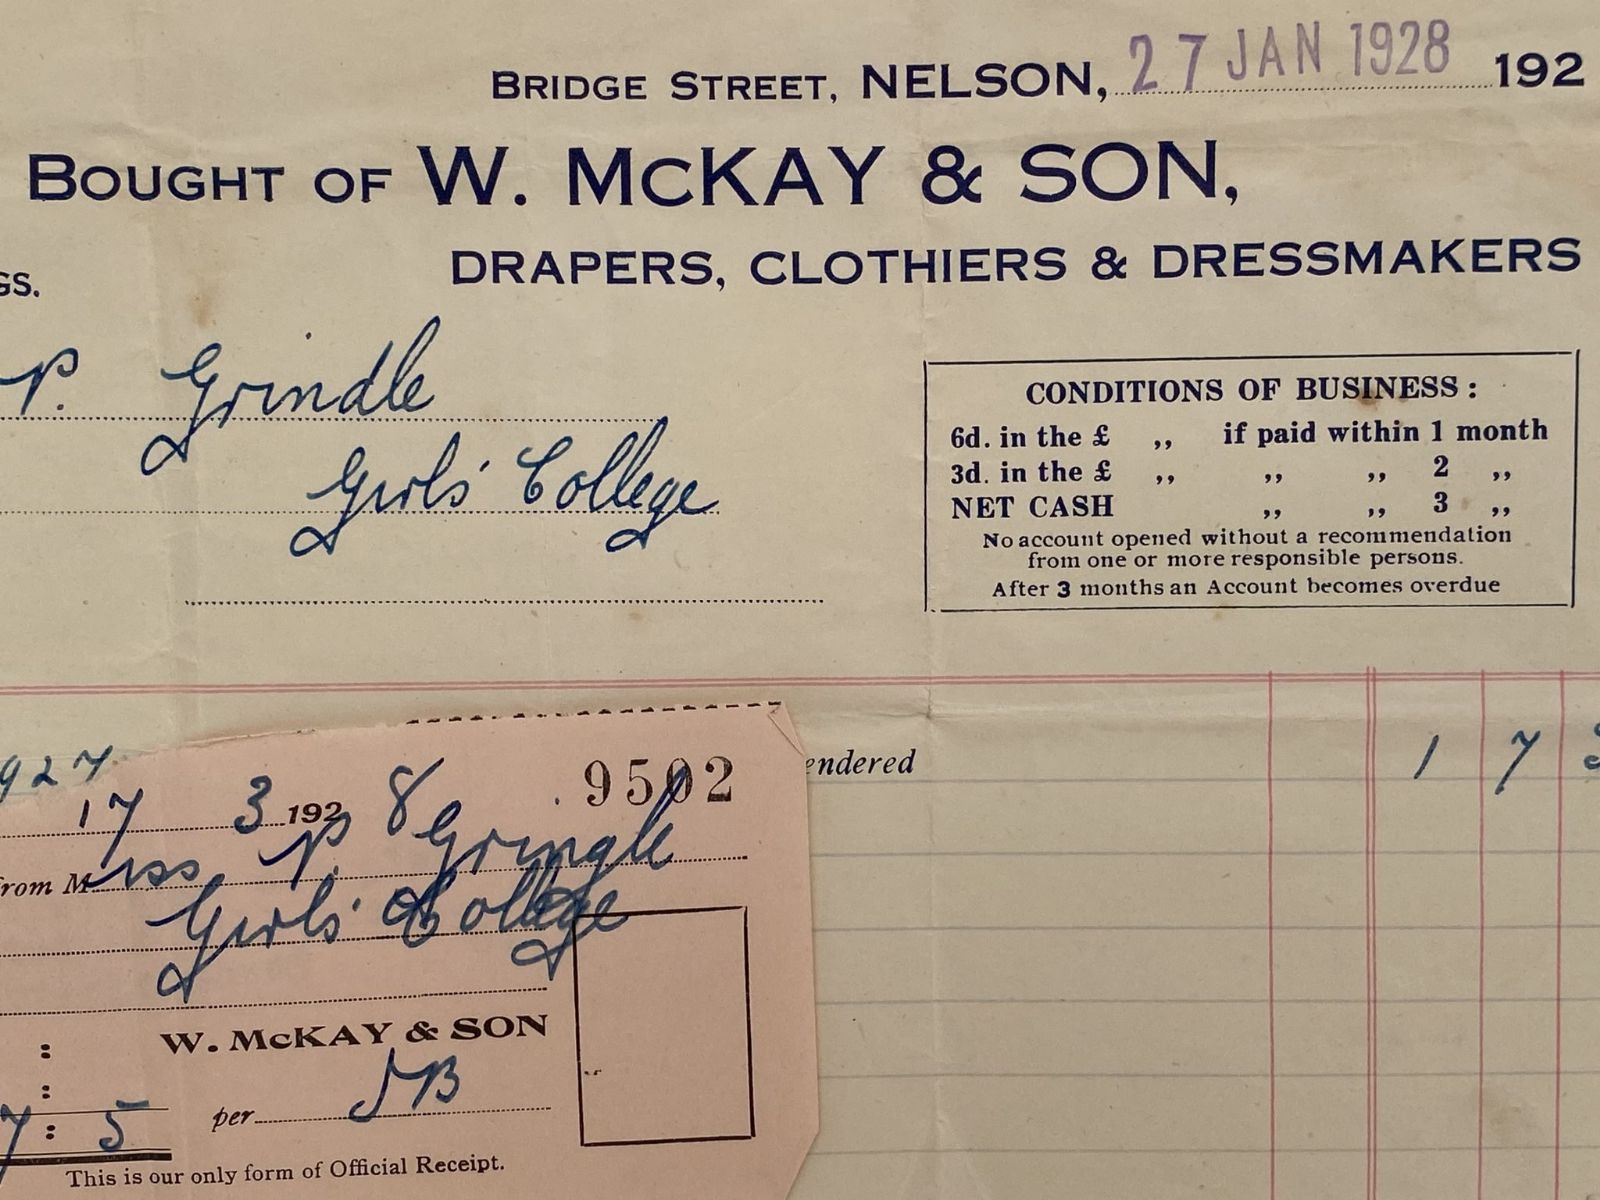 BRIDGE STREET, NELSON, 27 JAN 1928 192
BOUGHT OF W. McKAY & SON,
DRAPERS, CLOTHIERS & DRESSMAKERS
GS.
P. Grindle
Girls' College
CONDITIONS OF BUSINESS:
6d. in the £ ,, if paid within 1 month
3d. in the £ ,, ,, ,, 2 ,,
NET CASH ,, ,, 3 ,,
No account opened without a recommendation
from one or more responsible persons.
After 3 months an Account becomes overdue
endered 1 7
927
9502
17 3 1928
from Miss P. Gringle
Girls' College
:
W. McKAY & SON
:
7 : 5 per JB
This is our only form of Official Receipt.